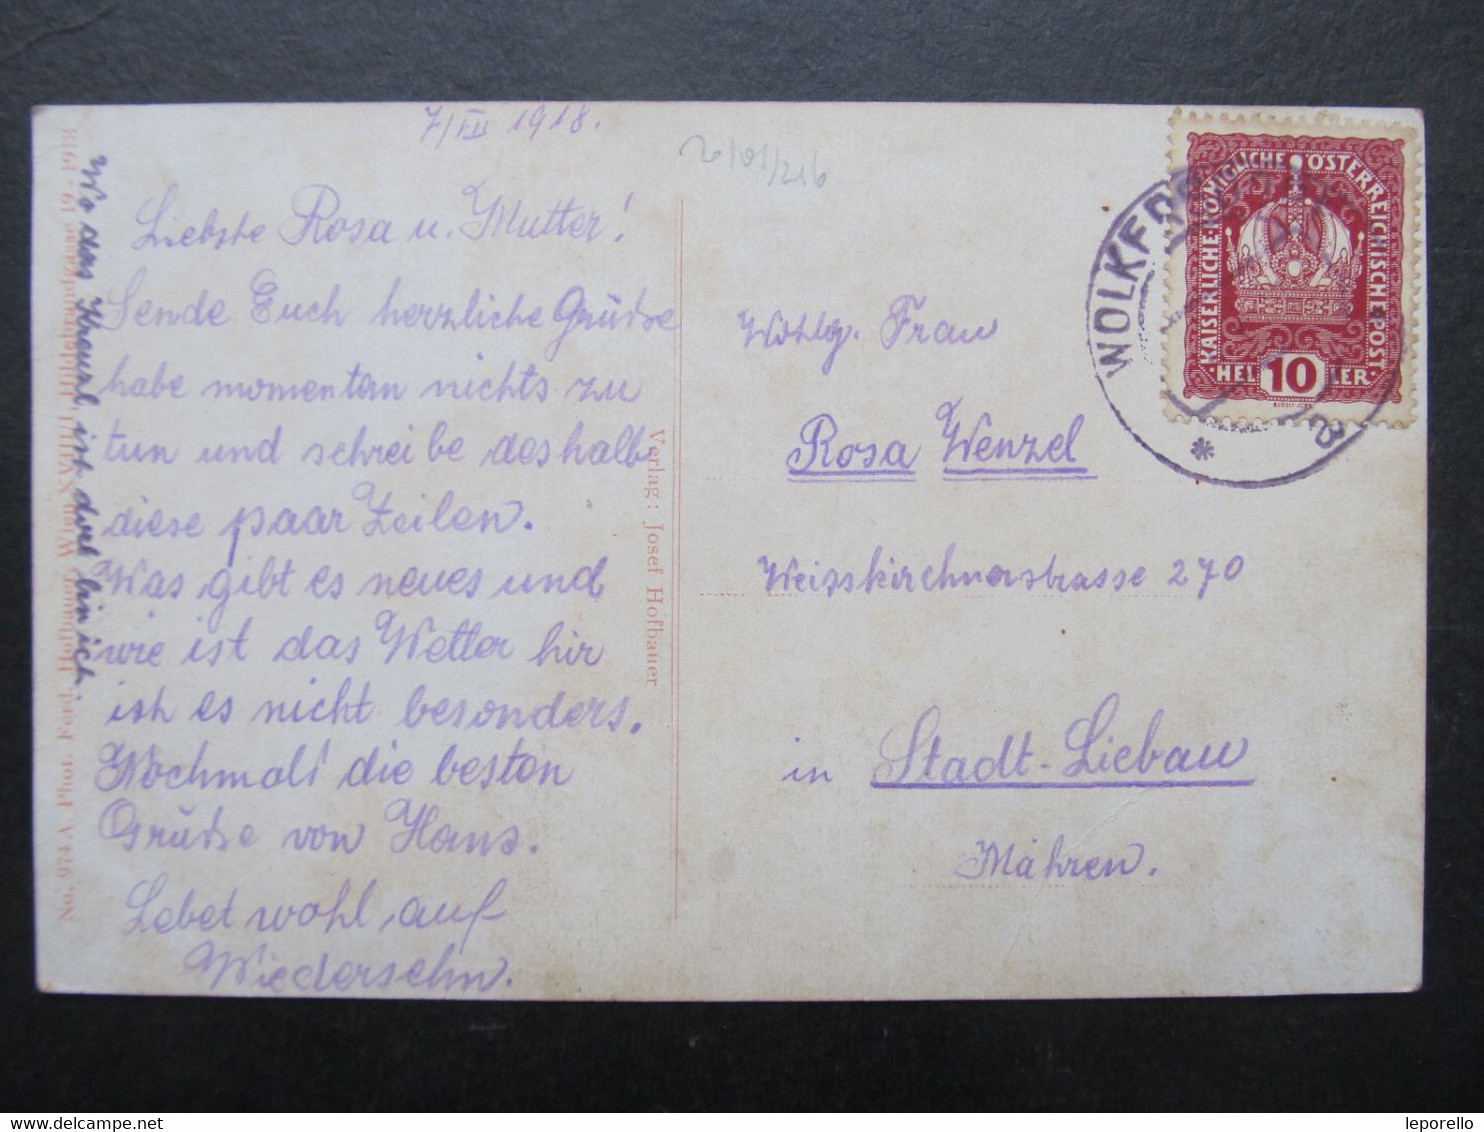 7/VII 1918.
Liebste Rosa u. Mutter!
Sende Euch herzliche Grüße
habe momentan nichts zu
tun und schreibe deshalb
diese paar Zeilen.
Was gibt es neues und
wie ist das Wetter hir
ist es nicht besonders.
Nochmals die besten
Grüße von Hans.
Lebet wohl, auf
Wiedersehn.
Wo das Kreuzl ist dort bin ich.
No. 974 A Phot. Ferd. Hofbauer, Wien XVIII/1, Hildebrandgasse 19 - 1914
Verlag: Josef Hofbauer
Wohlg. Frau
Rosa Wenzel
Weisskirchnerstrasse 270
in Stadt-Liebau
Mähren.
KAISERLICHE KÖNIGLICHE ÖSTERREICHISCHE POST
HELLER
10
WOLKER
*
leporello